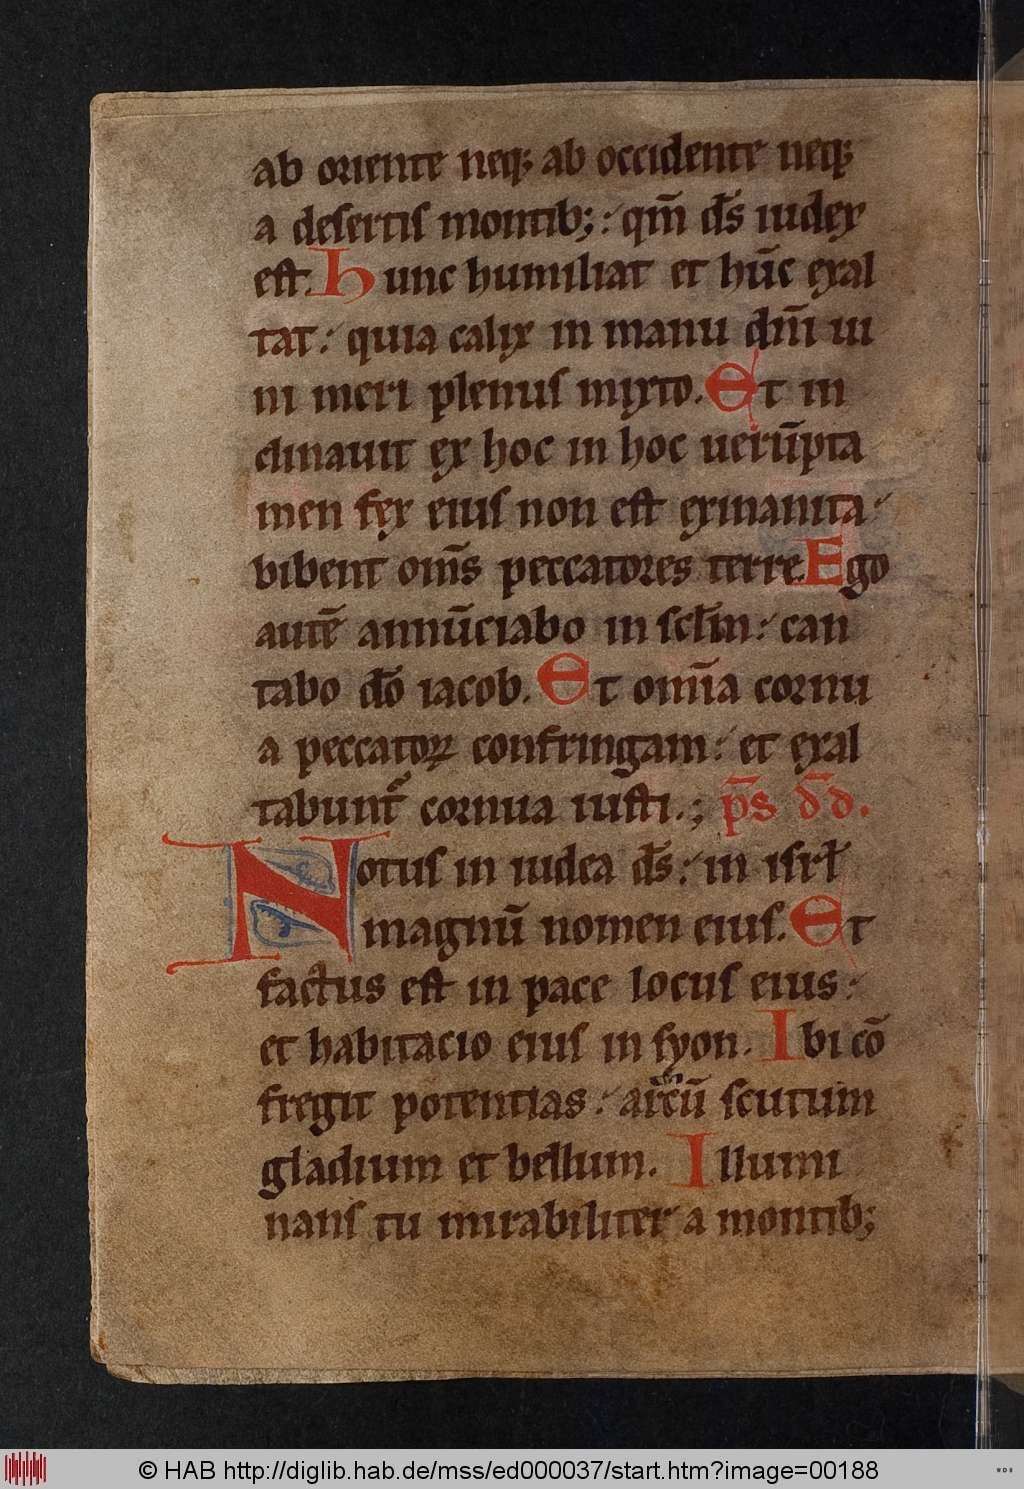 ab oriente neq; ab occidente neq;
a desertis montib;: qm̄ ds̄ iudex
est. Hunc humiliat et hūc exal
tat: quia calix in manu dm̄ ui
ni meri plenus mixto. Et in
clinauit ex hoc in hoc uerūpta
men fex eius non est exinanita:
bibent om̄s peccatores terre. Ego
autē annūciabo in sclm̄: can
tabo dō iacob. Et om̄ia cornu
a peccatoꝝ confringam: et exal
tabunt᷑ cornua iusti.; ps̄ dd̄.
Notus in iudea ds̄: in isrl̄
magnū nomen eius. Et
factus est in pace locus eius:
et habitacio eius in syon. Ibi cō
fregit potentias: arcū scutum
gladium et bellum. Illumi
nans tu mirabiliter a montib;
© HAB http://diglib.hab.de/mss/ed000037/start.htm?image=00188